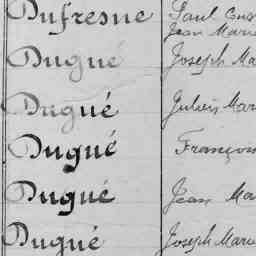 Dufresne Paul
Jean Marie
Dugué Joseph Ma
Dugué Julien Mar
Dugué François
Dugué Jean Ma
Dugué Joseph Marie